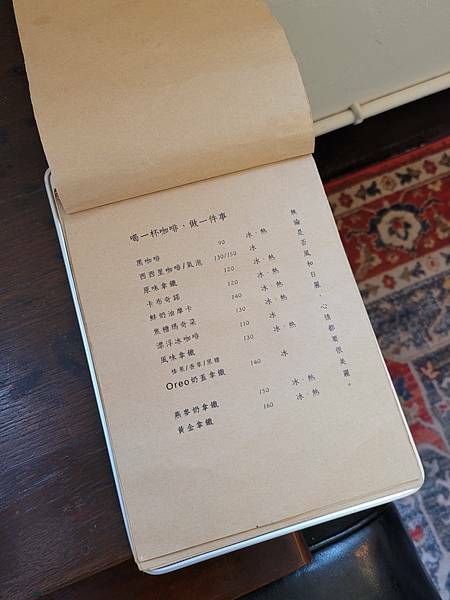 喝一杯咖啡，做一件事
黑咖啡 90 冰.熱
西西里咖啡/氣泡 130/150 冰
原味拿鐵 120 冰.熱
卡布奇諾 120 冰.熱
鮮奶油摩卡 140 冰.熱
焦糖瑪奇朵 130 冰.熱
漂浮冰咖啡 110 冰
風味拿鐵 130 冰.熱
榛果/香草/黑糖
Oreo奶蓋拿鐵 140 冰
燕麥奶拿鐵 150 冰.熱
黃金拿鐵 160 冰.熱
無論是否風和日麗，心情都要很美麗。